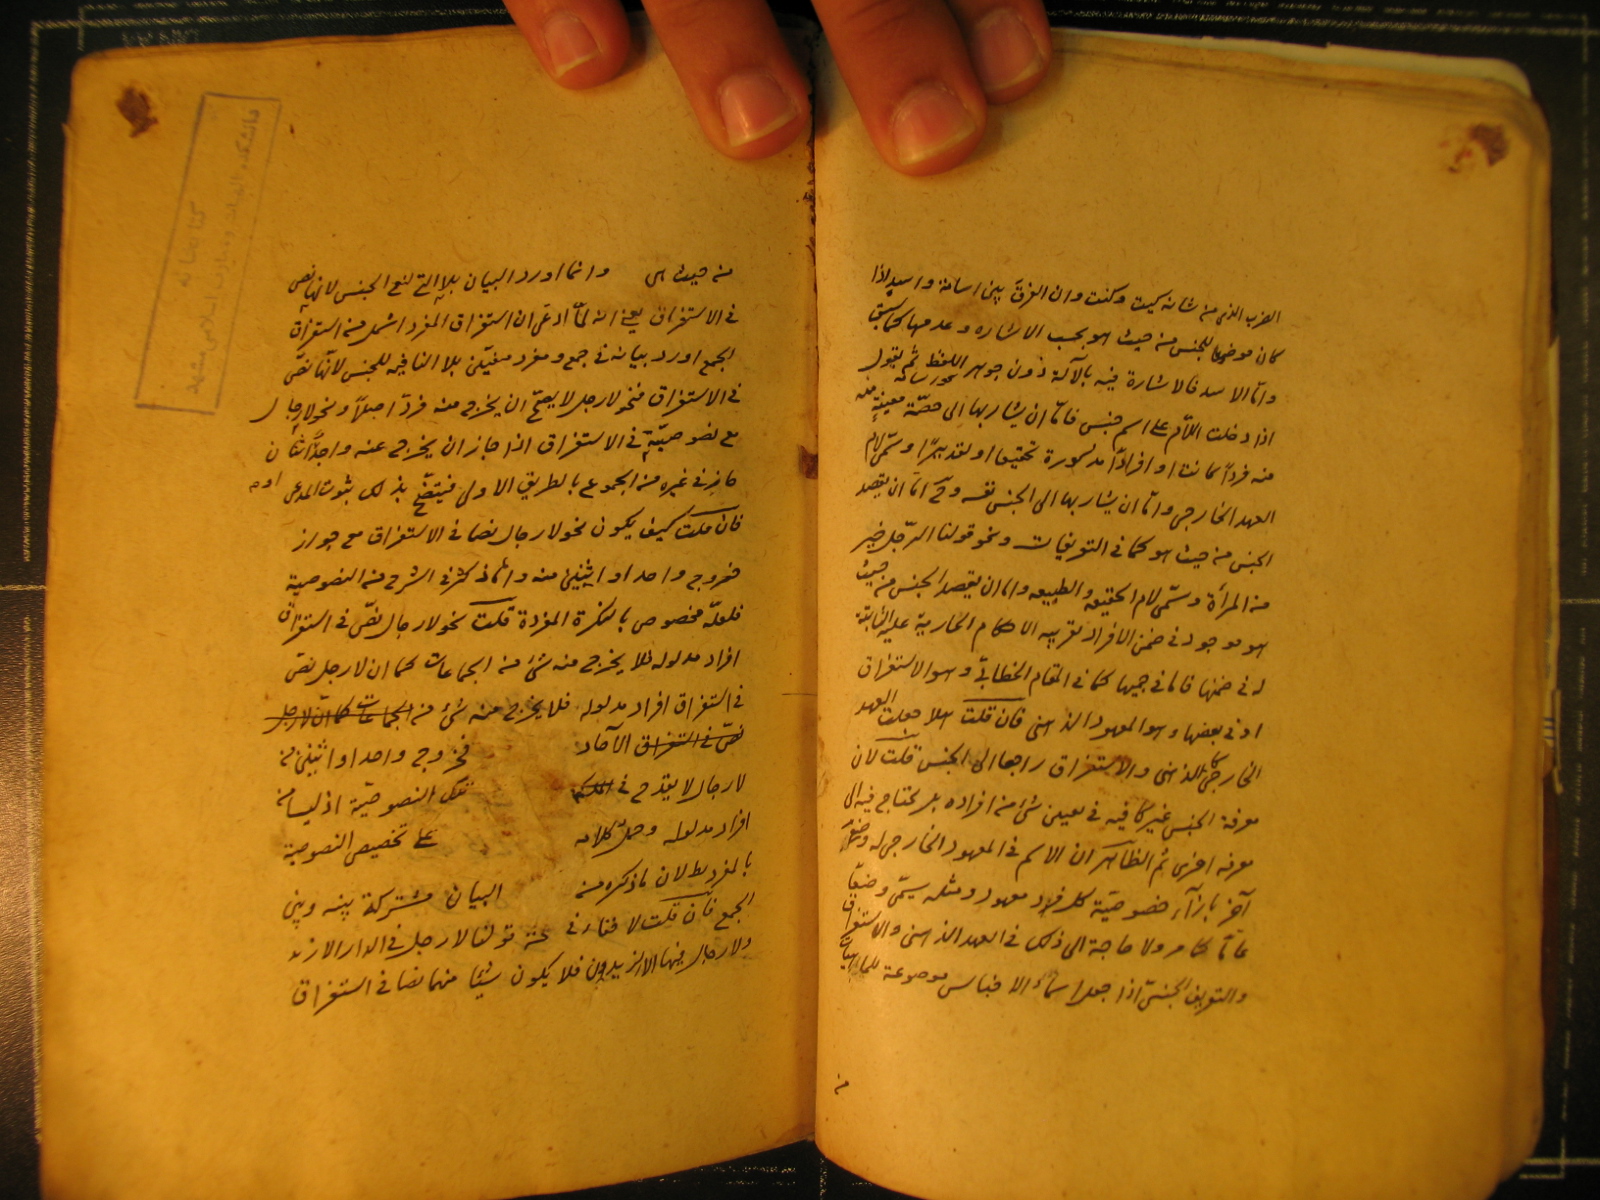 الضرب الذى من شانه كيت وكنت وان الفرق بين اسامة واسد اذا
كان موضوعا للجنس من حيث هو بحسب الاشاره وعدمها كما سبق
وامّا الاسد فالاشارة فيه بالآلة دون جوهر اللفظ ثم يقول
اذا دخلت اللّام على اسم جنس فامّا ان يشار بها الى حصّة معينة منه
منه فردًا كانت او افرادًا مذكورة تحقيقا او تقديرًا وسمّى لام
العهد الخارجى وامّا ان يشار بها الى الجنس نفسه وح امّا ان يقصد
الجنس من حيث هو كما فى التعريفات ونحو قولنا الرّجل خير
من المرأة وسمّى لام الحقيقه والطبيعه واما ان يقصد الجنس من حيث
هو موجود فى ضمن الافراد بقرينه الاحكام الجارية عليه الثابتة
له فى ضمنها فاما فى جميعها كما فى المقام الخطابى وهو الاستغراق
او فى بعضها وهو المعهود الذهنى فان قلت هلا جعلت العهد
الخارجى كالذهنى والاستغراق راجعا الى الجنس قلت لان
معرفة الجنس غير كافيه فى تعيين شئ من افراده بل يحتاج فيه الى
معرفه اخرى ثم الظاهر ان الاسم فى المعهود الخارجى له وضع
آخر بازآء خصوصيّة كل فرد معهود ومثله يسمّى وضعًا
عامّا كما مر ولا حاجة الى ذلك فى العهد الذهنى والاستغراق
والتعريف الجنسى اذا جعل اسماء الاجناس موضوعة للماهيات
من
من حيث هى وانما اورد البيان بلا التى لنفى الجنس لانها نص
فى الاستغراق يعنى انه لمّا ادعى ان استغراق المفرد اشمل من استغراق
الجمع اورد بيانه فى جمع ومفرد منفيّين بلا النافيه للجنس لانّها نصّ
فى الاستغراق فنحو لا رجل لا يصحّ ان يخرج منه فردٌ اصلاً ونحو لا رجال
مع نصوصيّته فى الاستغراق اذا جاز ان يخرج عنه واحد او اثنان
جاز فى غيره من الجموع بالطريق الاولى فيتضح بذلك ثبوت المدعى
فان قلت كيف يكون نحو لا رجال نصا فى الاستغراق مع جواز
خروج واحد او اثنين منه وما ذكر فى الشرح من النصوصية
فلعلّه مخصوص بالنكرة المفردة قلت نحو لا رجال نصّ فى استغراق
افراد مدلوله فلا يخرج منه شئ من الجماعات كما ان لا رجل نصّ
فى استغراق افراد مدلوله فلا يخرج منه شئ من الجماعات كما ان لا رجل
نصّ فى استغراق الآحاد فخروج واحد او اثنين من
لا رجال لا يقدح فى تلك النصوصيّة اذ ليسا من
افراد مدلوله وحمل كلامه على تخصيص النصوصية
بالمفرد بطلان ما ذكره من البيان مشتركة بينه وبين
الجمع فان قلت لا خفاء فى صحة قولنا لا رجل فى الدار الا زيد
ولا رجال فيها الا الزيدون فلا يكون شئ منهما نصا فى استغراق
دانشكده الهيات ومعارف اسلامى مشهد
كتابخانه